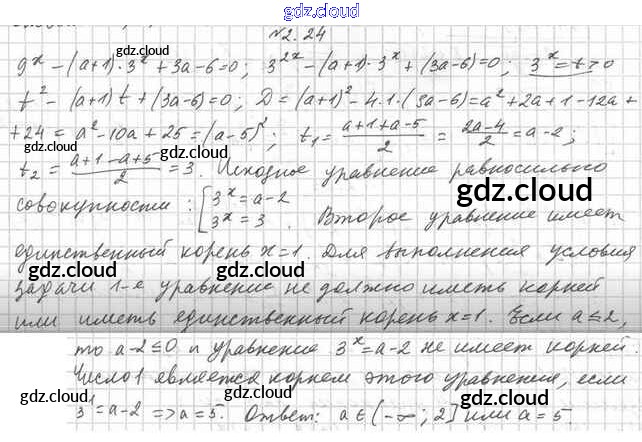 gdz.cloud
№2.24
9^x - (a+1)·3^x + 3a-6=0; 3^{2x} - (a+1)·3^x + (3a-6)=0; 3^x = t > 0
t² - (a+1)t + (3a-6)=0; D = (a+1)² - 4·1·(3a-6) = a² + 2a + 1 - 12a +
+ 24 = a² - 10a + 25 = (a-5)²; t₁ = (a+1+a-5)/2 = (2a-4)/2 = a-2;
t₂ = (a+1-a+5)/2 = 3. Исходное уравнение равносильно
совокупности: [3^x = a-2
3^x = 3. Второе уравнение имеет
единственный корень x=1. Для выполнения условия
задачи 1-е уравнение не должно иметь корней
или иметь единственный корень x=1. Если a≤2,
то a-2≤0 и уравнение 3^x = a-2 не имеет корней.
Число 1 является корнем этого уравнения, если
3^1 = a-2 => a=5. Ответ: a∈(-∞; 2] или a=5.
gdz.cloud
gdz.cloud
gdz.cloud
gdz.cloud
gdz.cloud
gdz.cloud
gdz.cloud
gdz.cloud
gdz.cloud
gdz.cloud
gdz.cloud
gdz.cloud
gdz.cloud